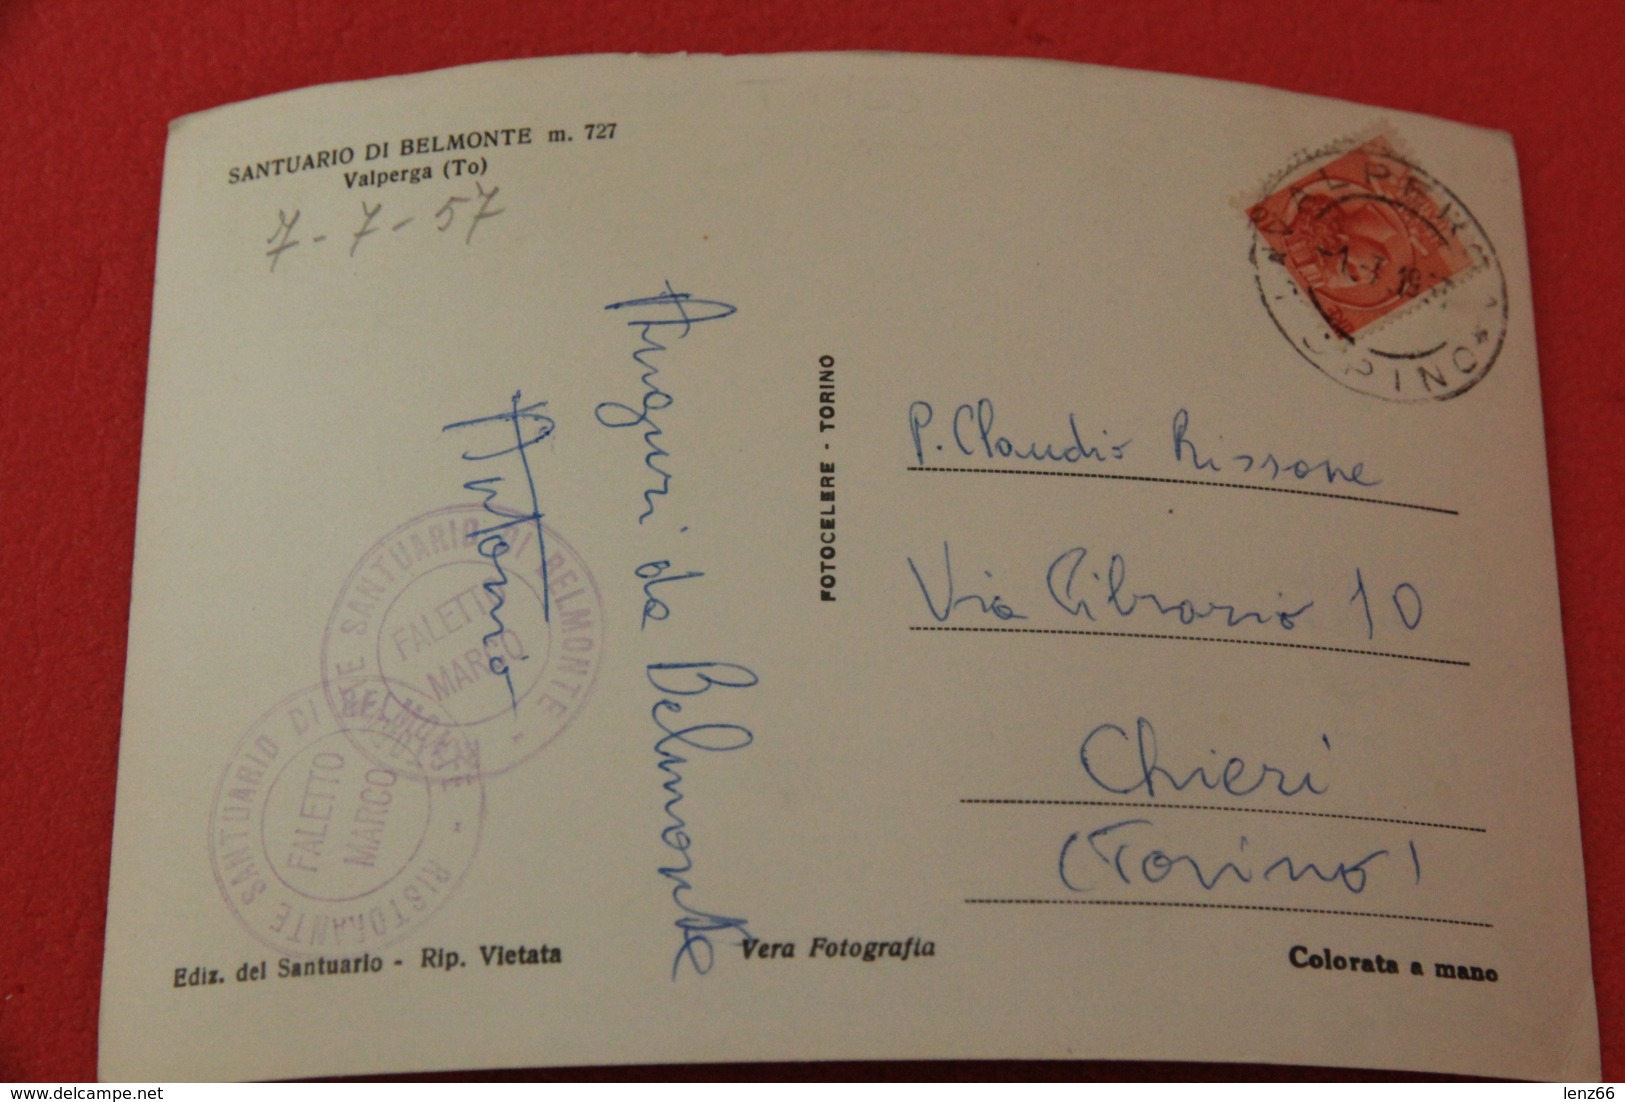 SANTUARIO DI BELMONTE m. 727
Valperga (To)
7-7-57
Auguri da Belmonte
Antonio
RISTORANTE SANTUARIO DI BELMONTE
FALETTO
MARCO
RISTORANTE SANTUARIO DI BELMONTE
FALETTO
MARCO
Ediz. del Santuario - Rip. Vietata
FOTOCELERE - TORINO
Vera Fotografia
VALPERGA
TORINO
P. Claudio Rissone
Via Cibrario 10
Chieri
(Torino)
Colorata a mano
delcampe.net
lenz66